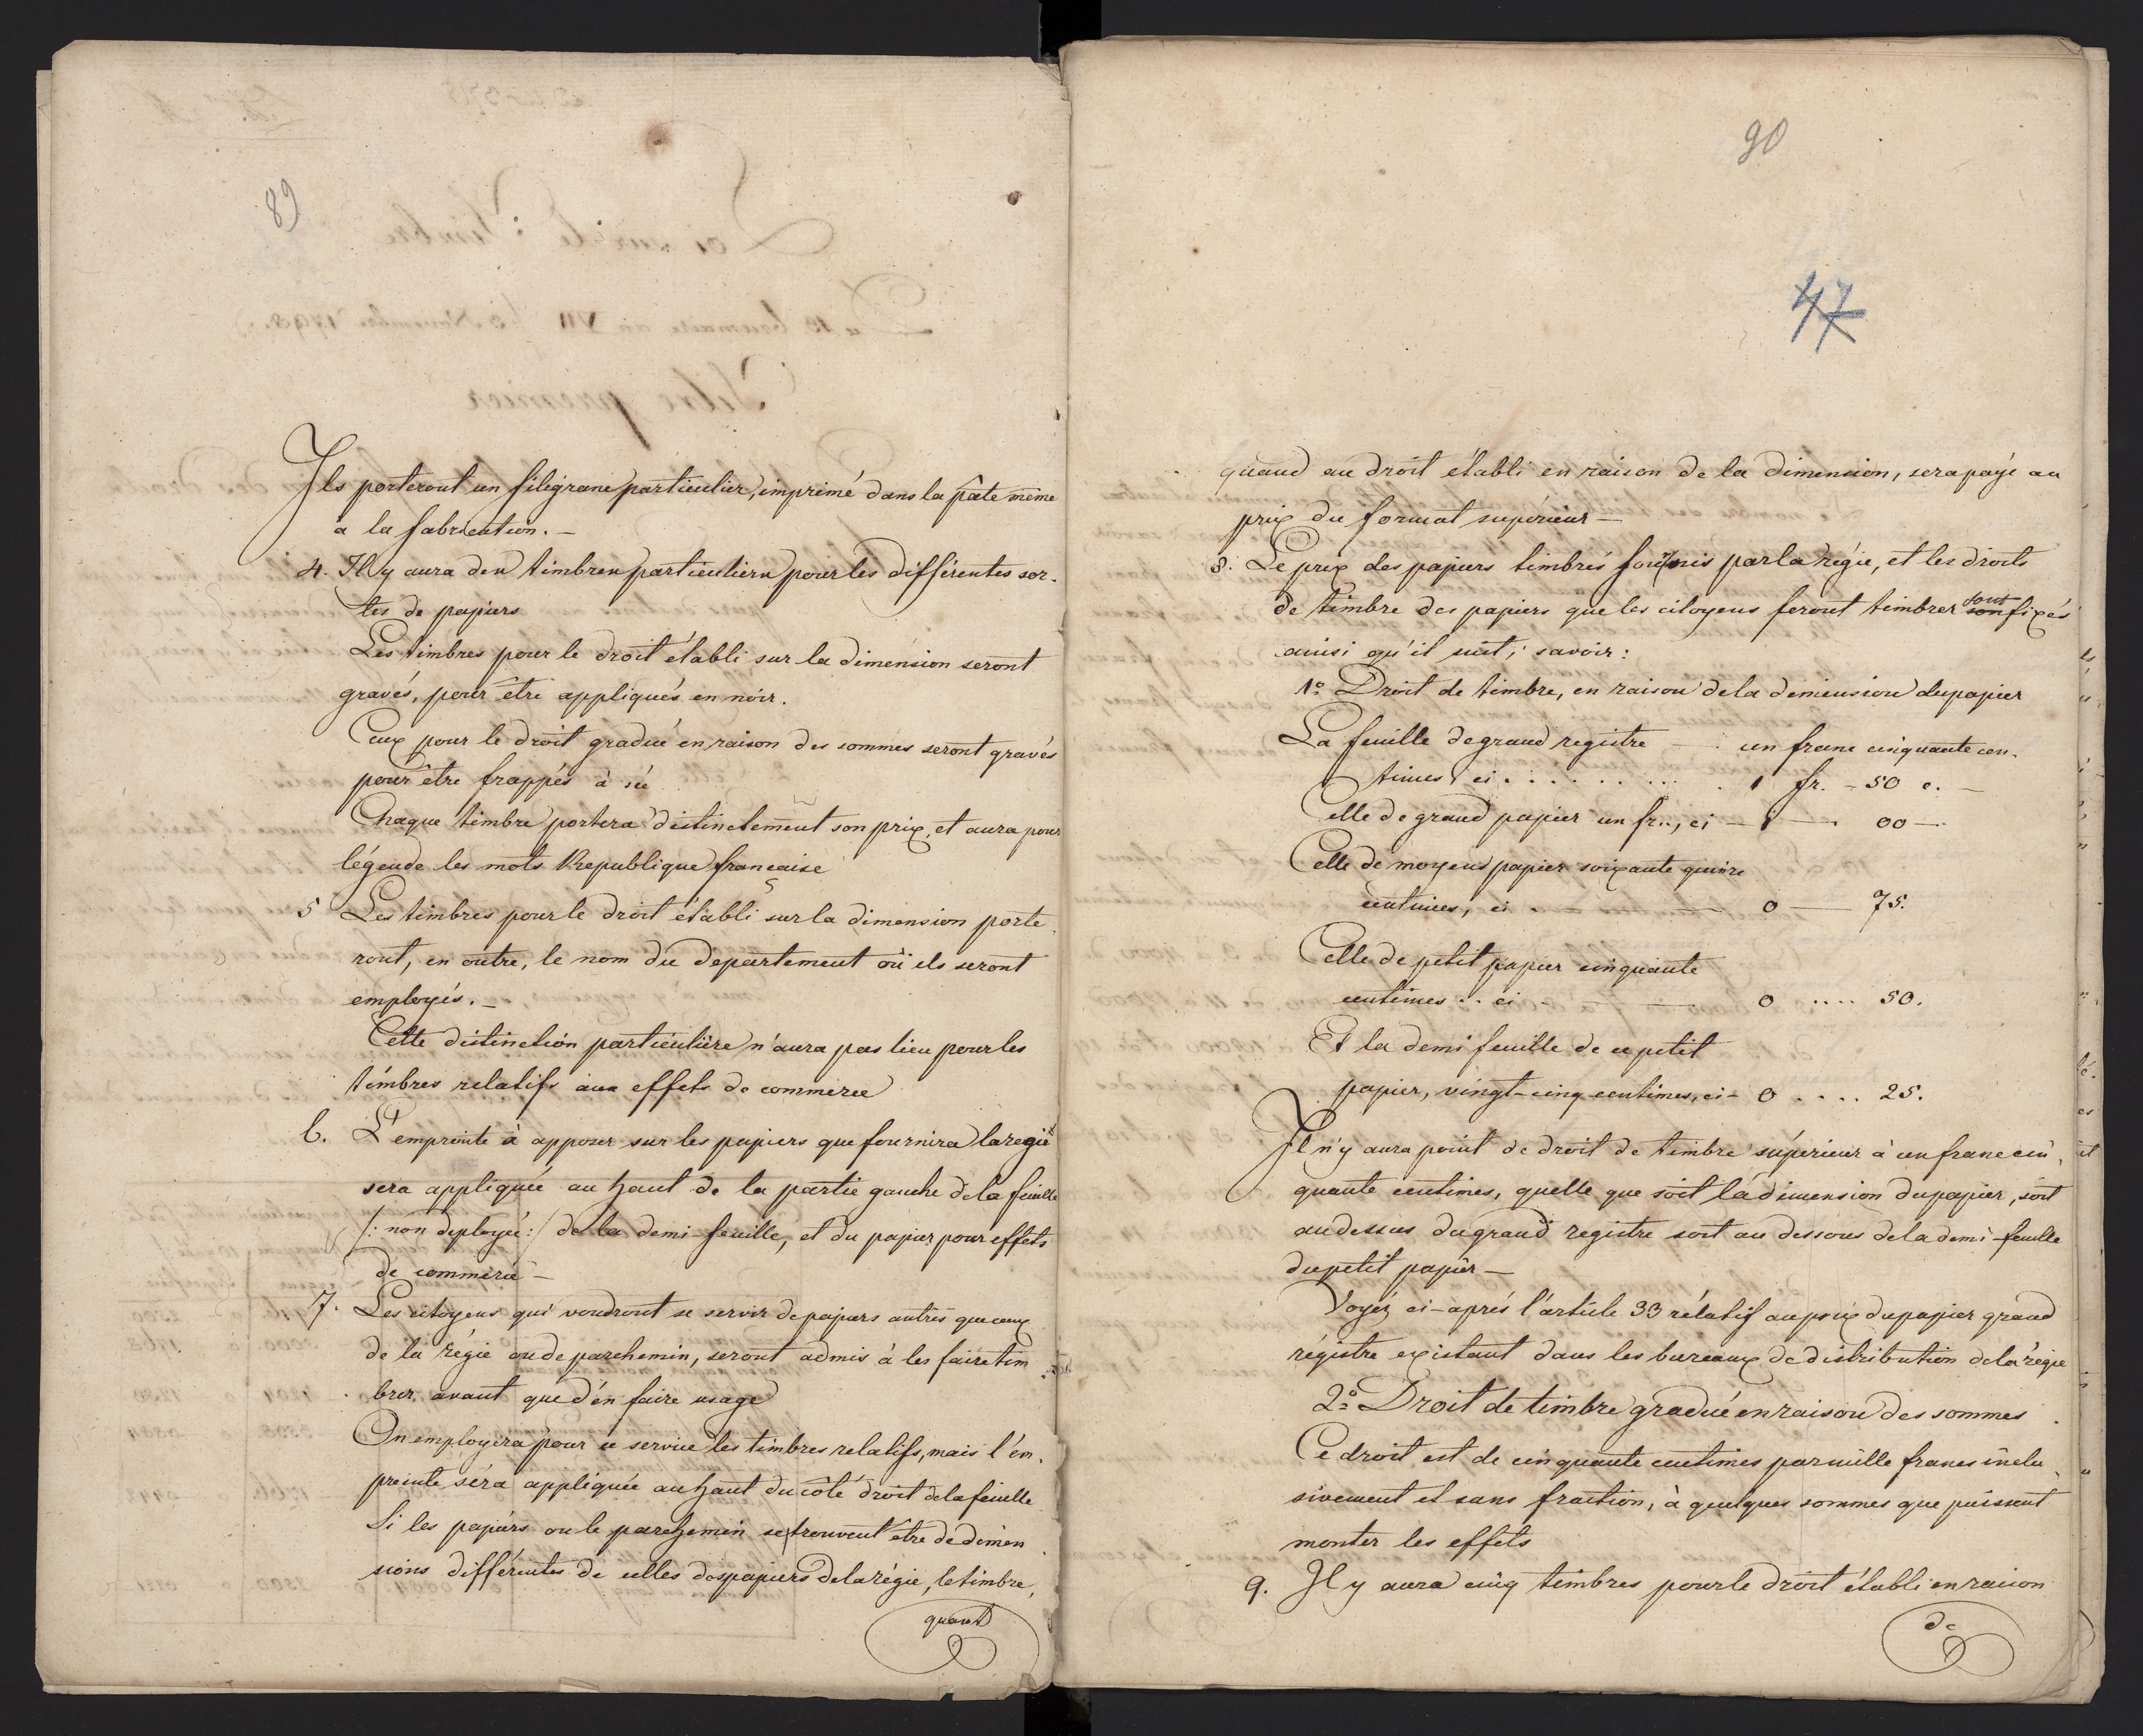 89
Ils porteront un filigrane particulier, imprimé dans la pâte même
a la fabrication. —
4. Il y aura des timbres particuliers pour les différentes sor-
tes de papiers
Les timbres pour le droit établi sur la dimension seront
gravés, pour être appliqués en noir.
Ceux pour le droit gradué en raison des sommes seront gravés
pour être frappés à sec
Chaque timbre portera distinctement son prix, et aura pour
légende les mots Republique francaise
5 Les timbres pour le droit établi sur la dimension porte
ront, en outre, le nom du departement où ils seront
employés. —
Cette distinction particulière n'aura pas lieu pour les
timbres relatifs aux effets de commerce
6. L'empreinte à apposer sur les papiers que fournira la regie
sera appliquée au haut de la partie gauche de la feuille
/: non deployée :/ de la demi-feuille, et du papier pour effets
de commerce —
7. Les citoyens qui voudront se servir de papiers autres que ceux
de la régie ou de parchemin, seront admis à les faire tim
brer avant que d'en faire usage
On employera pour ce service les timbres relatifs, mais l'em-
preinte sera appliquée au haut du côté droit de la feuille
Si les papiers ou le parchemin se trouvent être de dimen
sions différentes de celles des papiers de la régie, le timbre,
quand
90
47
quand au droit établi en raison de la dimension, sera payé au
prix du format supérieur —
8. Le prix des papiers timbrés fournis par la régie, et les droits
de timbre des papiers que les citoyens feront timbrer sont fixés
ainsi qu'il suit; savoir:
1º Droit de timbre, en raison de la demension du papier
La feuille de grand registre — un franc cinquante cen-
times, ci . . . . . . . . . 1 fr. - 50 c. —
Celle de grand papier un fr., ci — 1 — 00 —
Celle de moyen papier soixante quinze
centimes, ci . — — — 0 — 75.
Celle de petit papier cinquante
centimes . . ci - — — 0 .... 50.
Et la demi feuille de ce petit
papier, vingt-cinq centimes, ci - 0 . . . . 25.
Il n'y aura point de droit de timbre supérieur à un franc cin-
quante centimes, quelle que soit la dimension du papier, soit
au dessus du grand registre soit au dessous de la demi-feuille
du petit papier —
Voyéz ci-aprés l'article 33 rélatif au prix du papier grand
régistre existant dans les bureaux de distribution de la régie
2º Droit de timbre gradué en raison des sommes
Ce droit est de cinquante centimes par mille francs inclu-
sivement et sans fraction, à quelques sommes que puissent
monter les effets
9. Il y aura cinq timbres pour le droit établi en raison
de